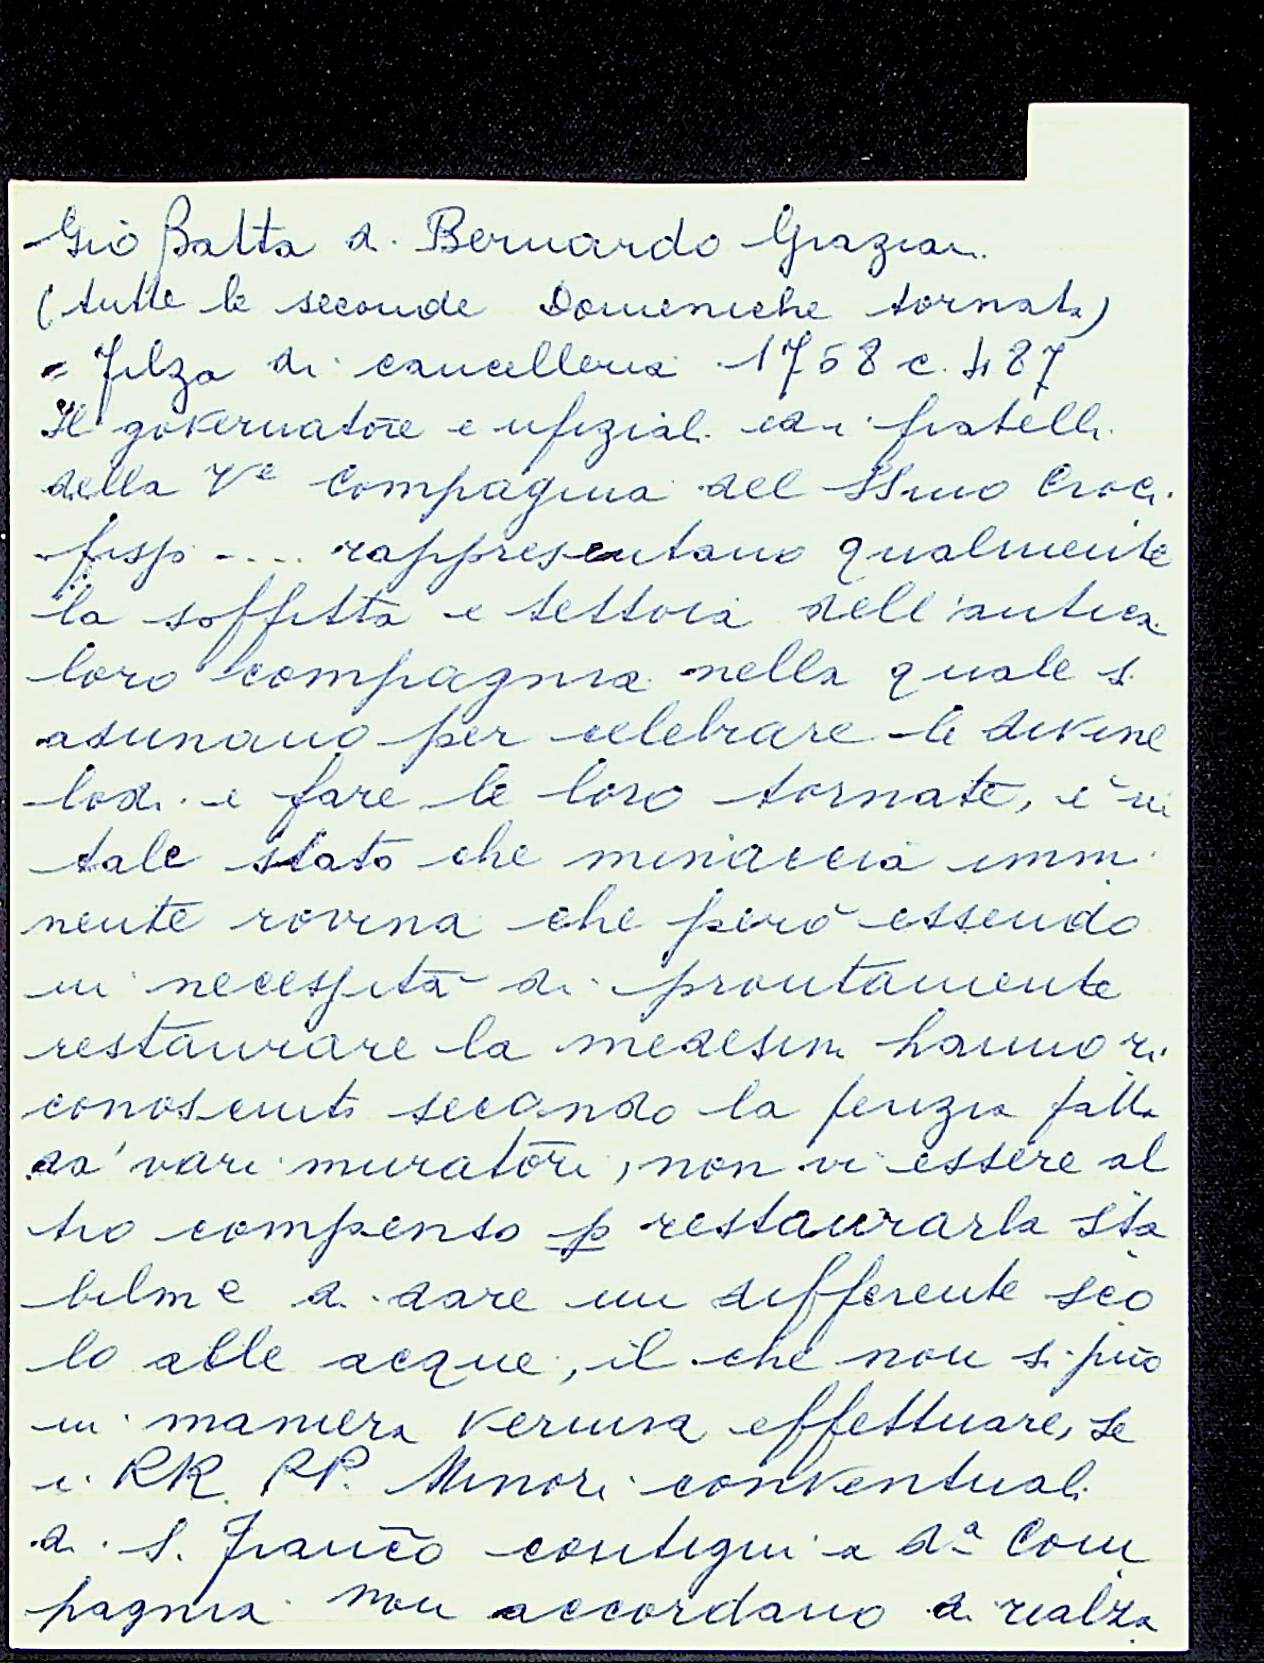 Giò Batta di Bernardo Graziani
(tutte le seconde Domeniche tornata)
= Filza di cancelleria 1758 c. 487
Il governatore e ufiziali ed i fratelli
della Ve Compagnia del SSmo Croci
fisso .... rappresentano qualmente
la soffitta e tettoia dell'antica
loro compagnia nella quale si
adunano per celebrare le divine
lodi e fare le loro tornate, è in
tale stato che minaccia immi
nente rovina che però essendo
in necessità di prontamente
restaurare la medesima hanno ri
conosciuto secondo la perizia fatta
da' vari muratori, non vi essere al
tro compenso p restaurarla sta
bilme di dare un differente sco
lo alle acque, il che non si può
in maniera veruna effettuare, se
i RR. PP. Minori conventuali
di S. Franco contigui a da Com
pagnia non accordano di rialza